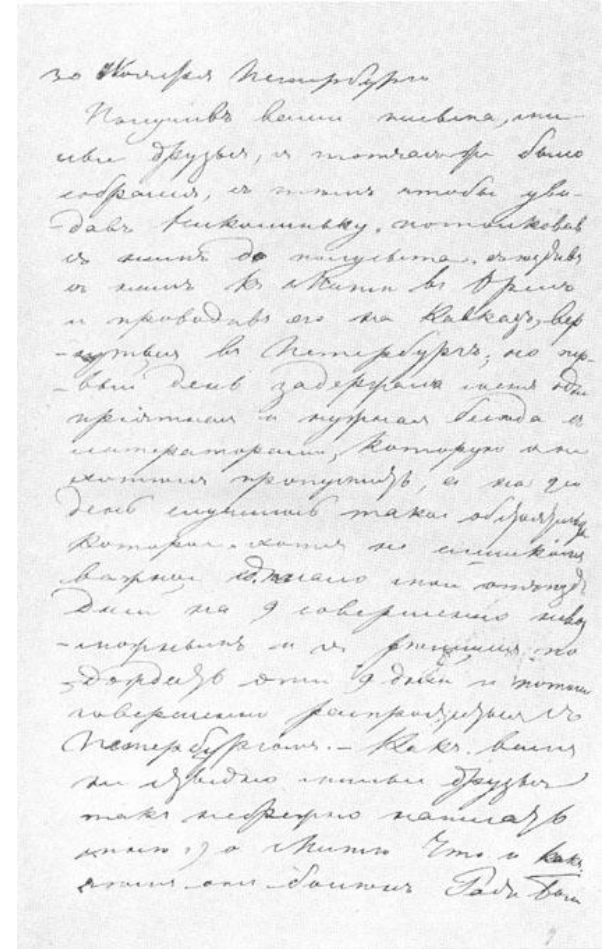 30 Ноября Петербургъ
Получивъ ваши письма, ми-
лые друзья, я тотчасъ же было
собрался, съ тѣмъ чтобы уви-
-давъ Николиньку, потолковавъ
съ нимъ до полусвѣта, съѣздивъ
съ нимъ къ Митѣ въ Орелъ
и проводивъ его на Кавказъ, вер-
-нуться въ Петербургъ; но пер-
-вый день задержала меня одна
пріятная и нужная бесѣда съ
литераторами, которую я не
хотѣлъ пропустить, а на 2й
день случилось такое обстоятельство
которое хотя не слишкомъ
важное сдѣлало мой отъѣздъ
дней на 9 совершенно невоз-
-можнымъ и я рѣшился по-
-дождать эти 9 дней и потомъ
совершенно распроститься съ
Петербургомъ. – Какъ вамъ
не стыдно милые друзья
такъ небрежно написать
мнѣ о Митѣ Что и какъ
онъ боленъ Ради Бога